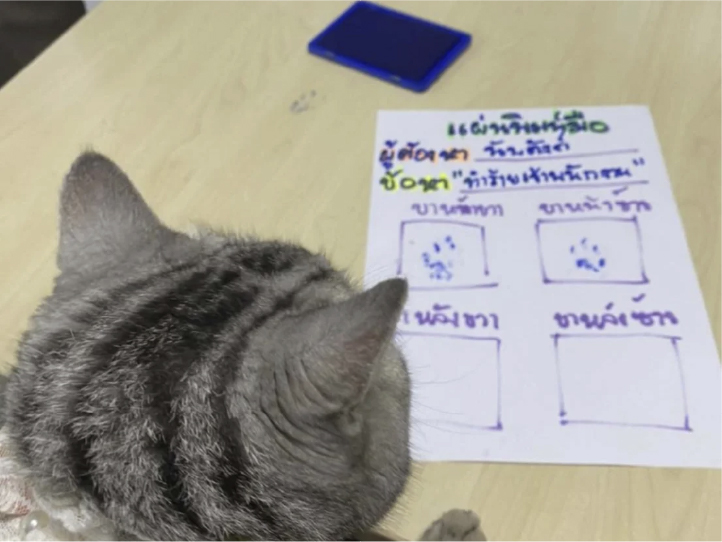 แผ่นพิมพ์มือ
ผู้ต้องหา นับตังค์
ข้อหา "ทำร้ายเจ้าพนักงาน"
ขาหน้าขวา ขาหน้าซ้าย
หลังขวา ขาหลังซ้าย